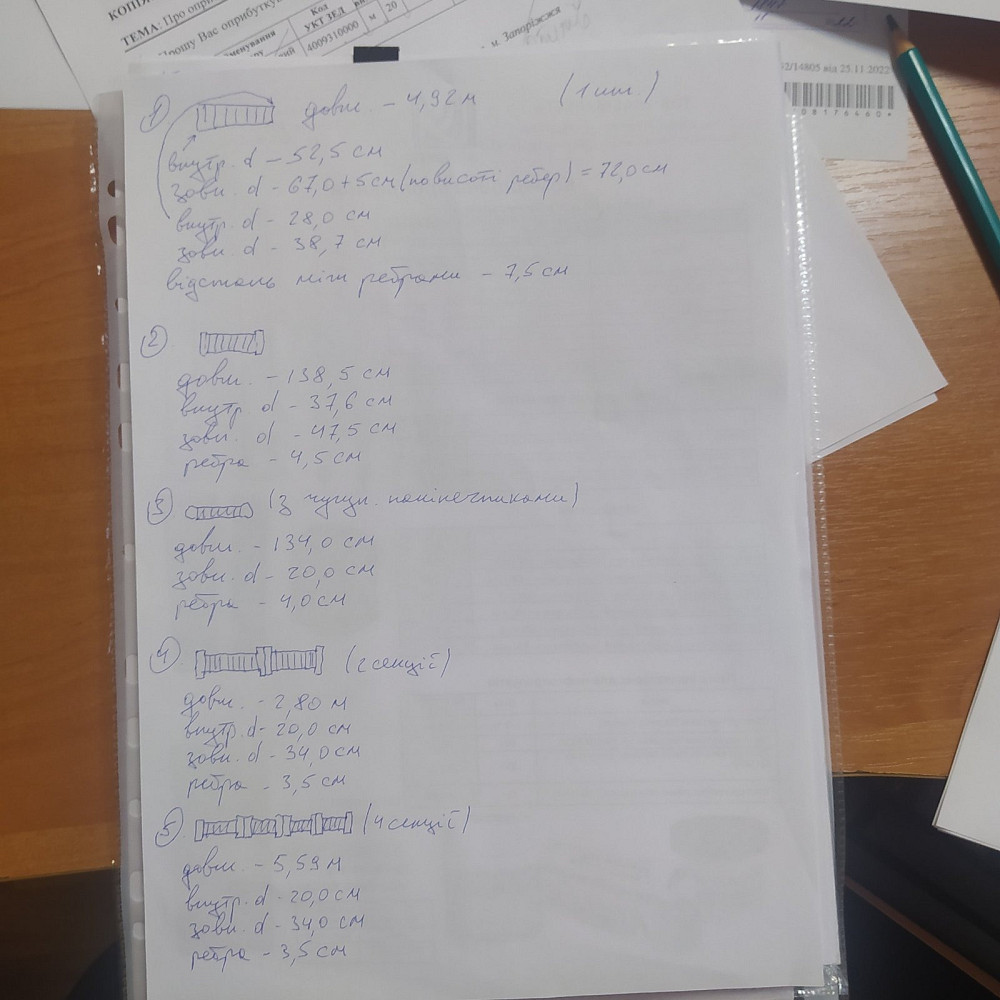 КОПІЯ
ТЕМА: Про оприбуткування
Прошу Вас оприбуткувати
Код
УКТ ЗЕД
4009310000 м 20
м. Запоріжжя
/14805 від 25.11.2022
① довж. – 4,92 м (1 шт.)
внутр. d – 52,5 см
зовн. d – 67,0 + 5 см (по висоті ребер) = 72,0 см
внутр. d – 28,0 см
зовн. d – 38,7 см
відстань між ребрами – 7,5 см
②
довж. – 138,5 см
внутр d – 37,6 см
зовн. d – 47,5 см
ребра – 4,5 см
③ (з чугун. накінечниками)
довж. – 134,0 см
зовн. d – 20,0 см
ребра – 4,0 см
④ (2 секції)
довж. – 2,80 м
внутр. d – 20,0 см
зовн. d – 34,0 см
ребра – 3,5 см
⑤ (4 секції)
довж. – 5,59 м
внутр. d – 20,0 см
зовн. d – 34,0 см
ребра – 3,5 см